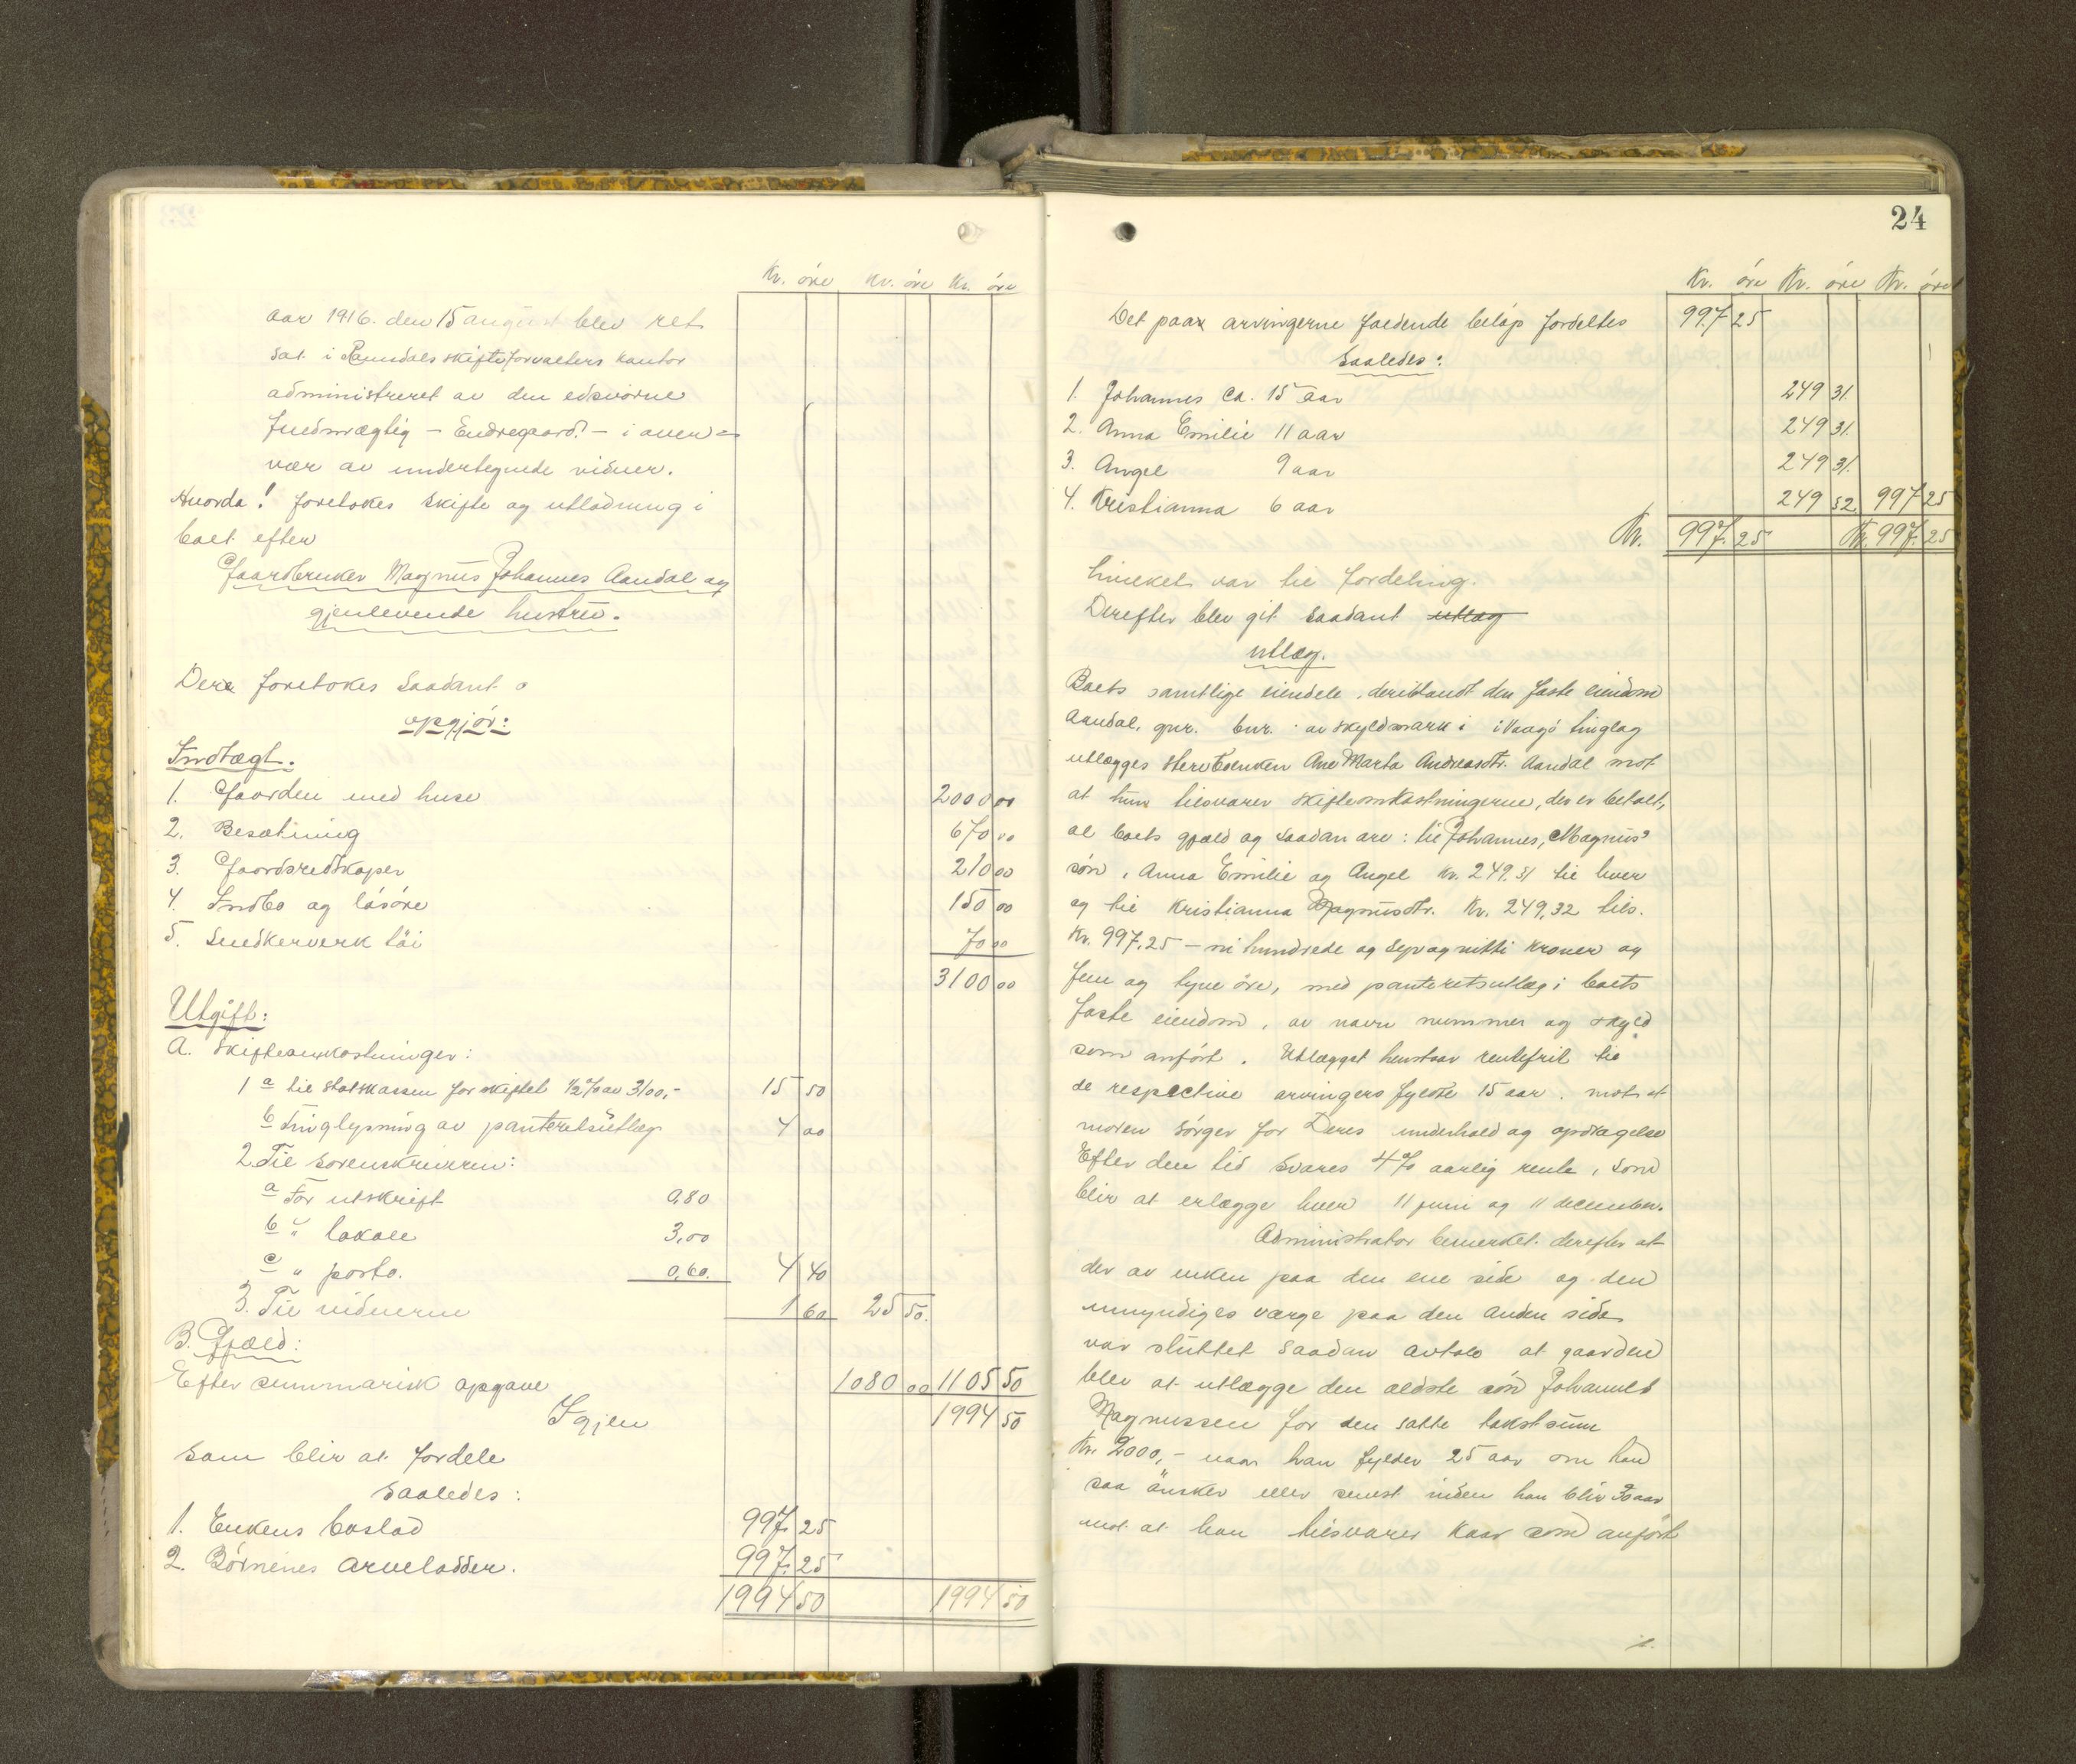 Kr. öre Kr. öre Kr. öre
aar 1916. den 15 august blev ret
sat i Romsdals skifteforvalters kontor
administreret av den edsvorne
fuldmægtig – Endregaard – i over=
vær av undertegnede vidner.
Hvorda! foretokes skifte og utlodning i
boet efter
Gaardbruker Magnus Johannes Aandal og
gjenlevende hustru.
Der foretokes saadant
opgjör:
Indtægt.
1. Gaarden med huse 2000 00
2. Besætning 670 00
3. Gaardsredskaper 210 00
4. Indbo og lösöre 150 00
5. Snedkerverk töi 70 00
3100 00
Utgift:
A. Skifteomkostninger:
1 a til statskassen for skiftet 1/2 % av 3100,- 15 50
b Tinglysning av panteretsutlæg 4 00
2. Til sorenskriveren:
a For utskrift 0,80
b " lokale 3,00
c " porto. 0,60. 4 40
3. Til vidnerne 1 60 25 50.
B. Gjæld:
Efter summarisk opgave 1080 00 1105 50
Igjen 1994 50
som blir at fordele
saaledes:
1. Enkens boslod 997. 25
2. Börnenes arvelodder. 997. 25
1994 50 1994 50
24
Kr. öre Kr. öre Kr. öre
Det paa arvingerne faldende belöp fordeltes 997 25
saaledes:
1. Johannes ca. 15 aar 249 31.
2. Anna Emilie 11 aar 249 31.
3. Angel 9 aar 249 31.
4. Kristianna 6 aar 249 32. 997 25
Kr. 997. 25 Kr. 997. 25
hvilket var til fordeling.
Derefter blev git saadant utlæg
utlæg.
Boets samtlige eiendele, deriblandt den faste eiendom
Aandal, gnr. bnr. av skyldmark i Vaagö tinglag
utlægges enken Ane Marta Andreasdtr. Aandal mot
at hun tilsvarer skifteomkostningerne, der er betalt,
al boets gjæld og saadan arv: til Johannes, Magnus
sön, Anna Emilie og Angel Kr. 249,31 til hver
og til Kristianna Magnusdtr. Kr. 249,32 tils.
Kr. 997,25 – ni hundrede og syvognitti kroner og
fem og tyve öre, med panteretsutlæg i boets
faste eiendom, av navn nummer og skyld
som anfört. Utlægget henstaar rentefrit til
de respective arvingers fyldte 15 aar. mot at
moren sörger for Deres underhold og opdragelse
Efter den tid svares 4 % aarlig rente, som
blir at erlægge hver 11 juni og 11 december.
Administrator bemerket derefter at
der av enken paa den ene side og den
umyndiges værge paa den anden side
var sluttet saadan avtale at gaarden
blev at utlægge den ældste sön Johannes
Magnussen for den satte takstsum
Kr. 2000,- naar han fylder 25 aar om han
saa önsker eller senest inden han blir 30 aar
mot at han tilsvarer kaar som anfört